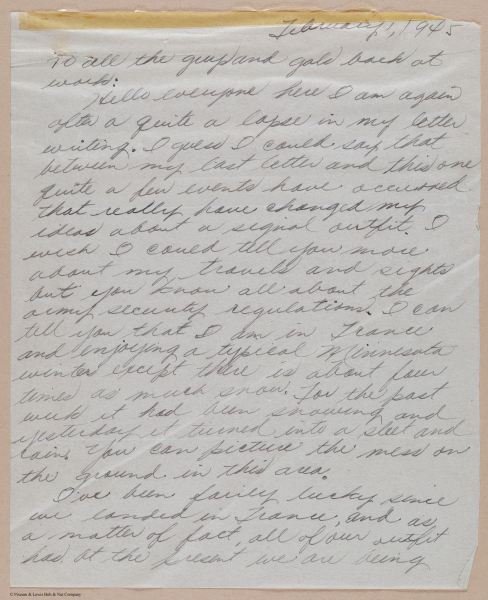 February 1, 1945
To all the guys and gals back at
work:
Hello everyone here I am again
after a quite a lapse in my letter
writing. I guess I could say that
between my last letter and this one
quite a few events have occurred
that really have changed my
ideas about a signal outfit. I
wish I could tell you more
about my travels and sights
but you know all about the
army security regulations. I can
tell you that I am in France
and enjoying a typical Minnesota
winter except there is about four
times as much snow. For the past
week it had been snowing and
yesterday it turned into a sleet and
rain. You can picture the mess on
the ground in this area.
I've been fairly lucky since
we landed in France, and as
a matter of fact, all of our outfit
has. At the present we are being
© Frozen & Lewis Bolt & Nut Company